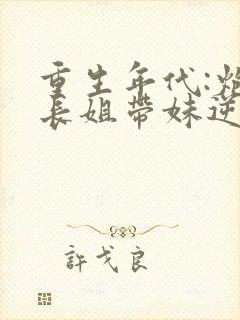 重生年代:炮
長姐帶妹逆
許戈良